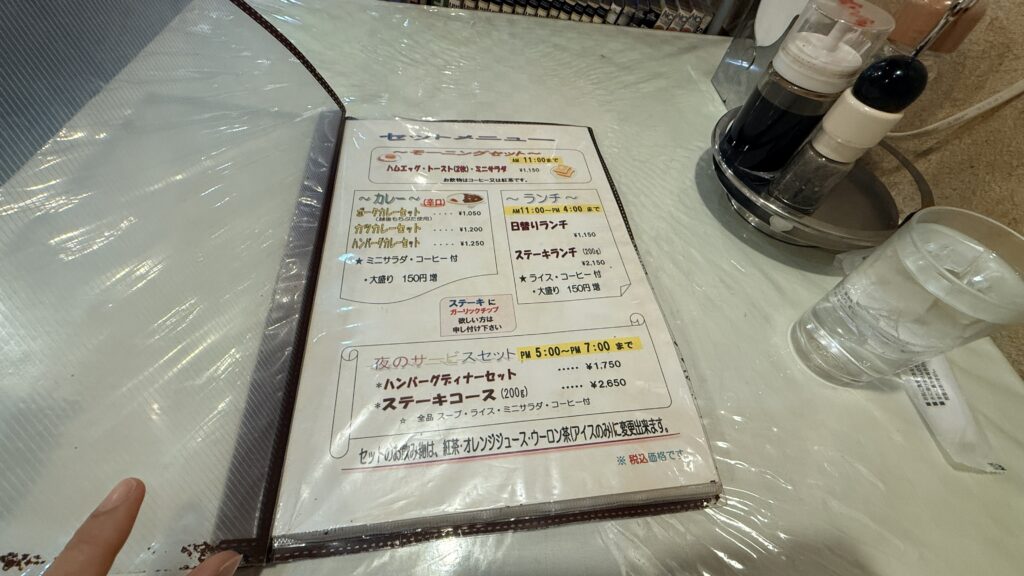 セットメニュー
～モーニングセット～
AM 11:00まで
ハムエッグ・トースト(2枚)・ミニサラダ ¥1,150
お飲物はコーヒー又は紅茶です。
～カレー～(辛口)
ポークカレーセット ‥‥ ¥1,050
(越後もちぶた使用)
カツカレーセット ‥‥ ¥1,200
ハンバーグカレーセット ‥‥ ¥1,250
★ ミニサラダ・コーヒー 付
・大盛り 150円 増
～ ランチ ～
AM11:00～PM 4:00 まで
日替りランチ
¥1,150
ステーキランチ (200g)
¥2,150
★ ライス・コーヒー 付
・大盛り 150円 増
ステーキ に
ガーリックチップ
欲しい方は
申し付け下さい
夜のサービスセット PM 5:00～PM 7:00 まで
*ハンバーグディナーセット ‥‥‥ ¥1,750
*ステーキコース (200g) ‥‥‥ ¥2,650
☆ 全品 スープ・ライス・ミニサラダ・コーヒー付
セットのお飲み物は、紅茶・オレンジジュース・ウーロン茶(アイスのみ)に変更出来ます。
※ 税込価格です